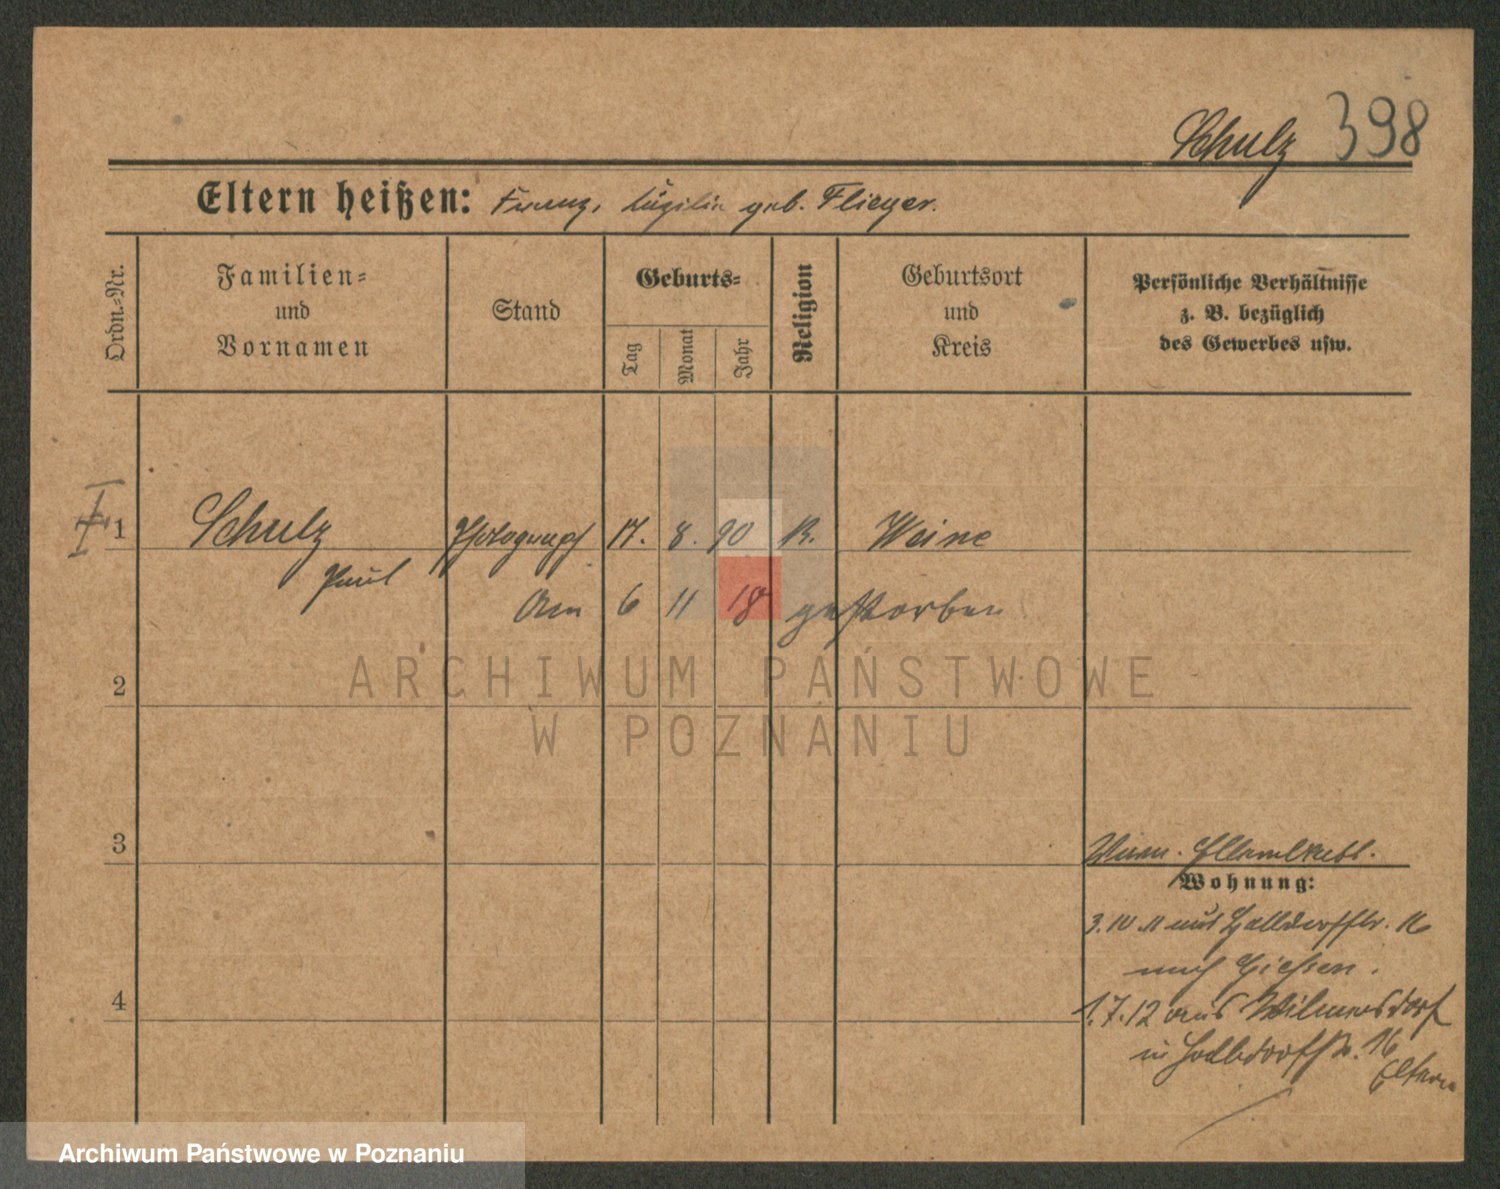 Schulz 398
Eltern heißen: Franz, Cäzilie geb. Flieger.
Ordn.-Nr.
Familien-
und
Vornamen
Stand
Geburts-
Tag
Monat
Jahr
Religion
Geburtsort
und
Kreis
Persönliche Verhältnisse
z. B. bezüglich
des Gewerbes usw.
1 Schulz Photograph 17. 8. 90 K. Weine
Paul
Am 6 11 18 gestorben
2
3
4
Wohnung:
3.10.11 aus 16
nach Giessen.
1.7.12 aus Wilmersdorf
in 16
Eltern
ARCHIWUM PAŃSTWOWE
W POZNANIU
Archiwum Państwowe w Poznaniu